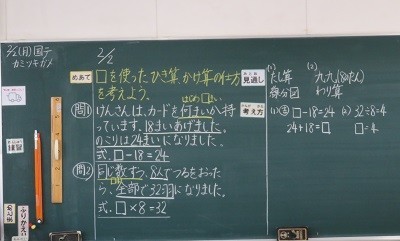 2/2(月)国テ
カミツキガメ
2/2
めあて
□を使ったひき算、かけ算の仕方
を考えよう。
はじめ □まい
問1 けんさんは、カードを何まいか持
っています。18まいあげました。
のこりは24まいになりました。
式.□-18=24
問2 同じ数ずつ、8人でつるをおった
□羽
ら、全部で32羽になりました。
式.□×8=32
見通し
(1)
たし算
線分図
(2)
九九(8のだん)
わり算
考え方
(1) □-18=24
24+18=□
(2) 32÷8=4
□=4
ふりかえり